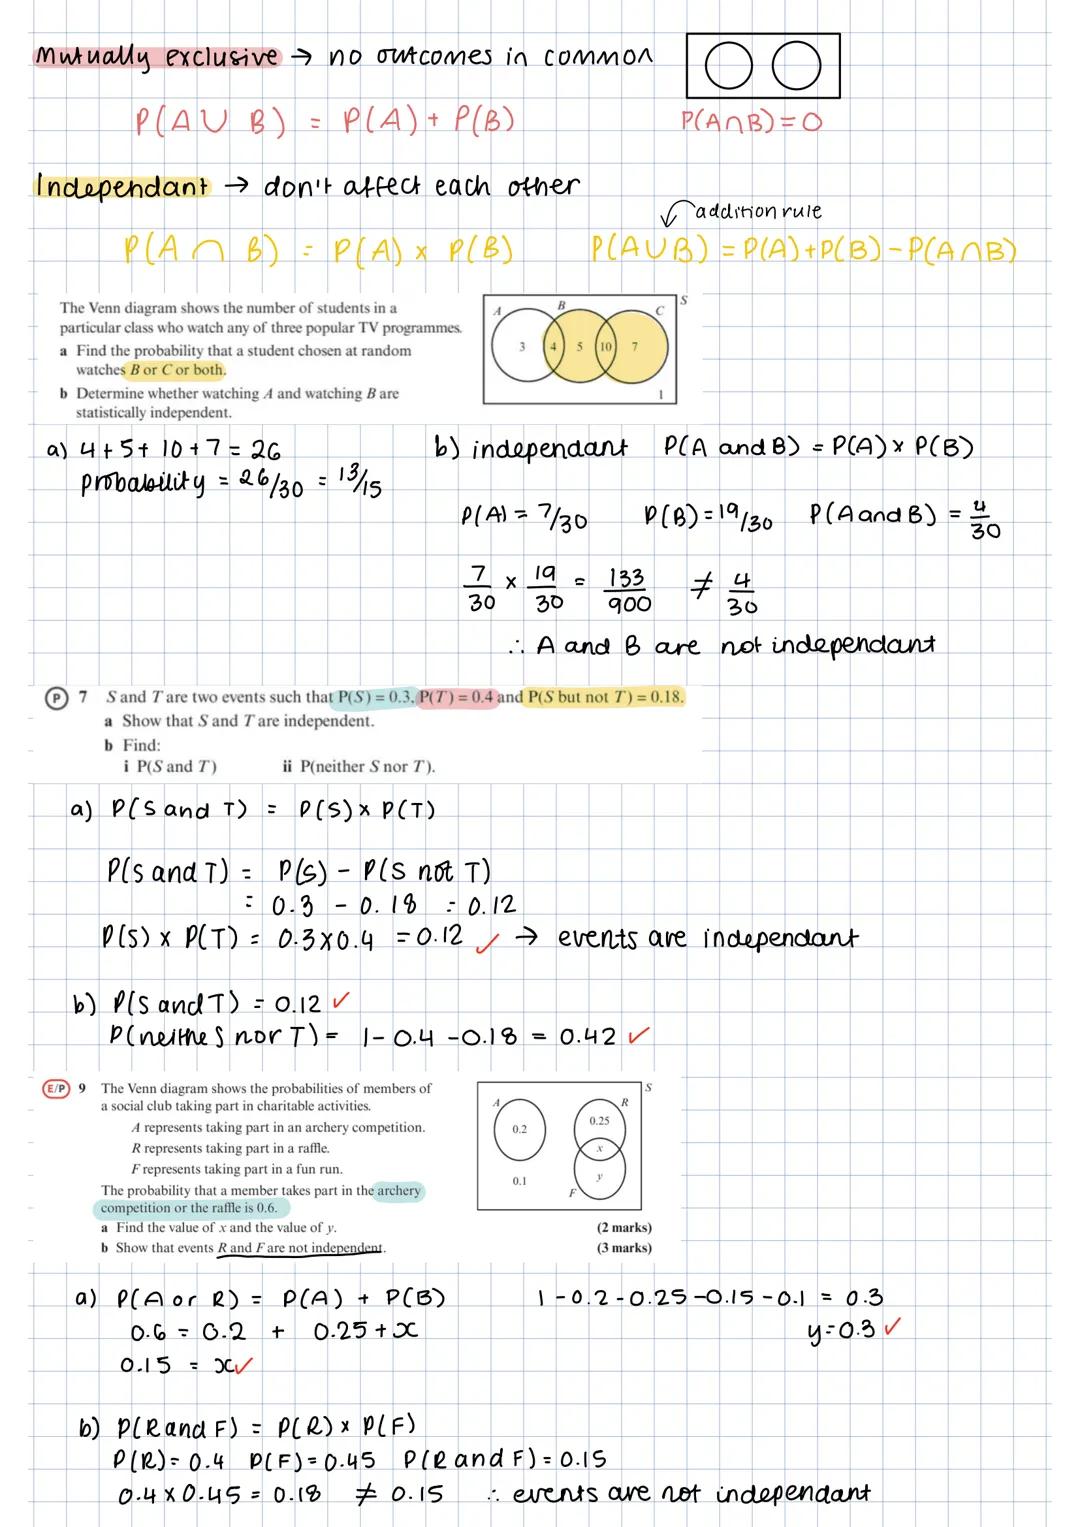 Mutually exclusive → no outcomes in common
P(A∪B) = P(A) + P(B)
P(A∩B) = 0
Independant → don't affect each other
addition rule
P(A∩B) = P(A) × P(B)
P(A∪B) = P(A)+P(B)-P(A∩B)
The Venn diagram shows the number of students in a
particular class who watch any of three popular TV programmes.
a Find the probability that a student chosen at random
watches B or C or both.
b Determine whether watching A and watching B are
statistically independent.
A B C S
3 4 5 10 7
1
a) 4+5+10+7 = 26
probability = 26/30 = 13/15
b) independant P(A and B) = P(A) × P(B)
P(A) = 7/30 P(B) = 19/30 P(A and B) = 4/30
7/30 × 19/30 = 133/900 ≠ 4/30
∴ A and B are not independant
P 7 S and T are two events such that P(S) = 0.3, P(T) = 0.4 and P(S but not T) = 0.18.
a Show that S and T are independent.
b Find:
i P(S and T) ii P(neither S nor T).
a) P(S and T) = P(S) × P(T)
P(S and T) = P(S) - P(S not T)
= 0.3 - 0.18 = 0.12
P(S) × P(T) = 0.3×0.4 = 0.12 ✓ → events are independant
b) P(S and T) = 0.12 ✓
P(neithe S nor T) = 1-0.4-0.18 = 0.42 ✓
E/P 9 The Venn diagram shows the probabilities of members of
a social club taking part in charitable activities.
A represents taking part in an archery competition.
R represents taking part in a raffle.
F represents taking part in a fun run.
The probability that a member takes part in the archery
competition or the raffle is 0.6.
a Find the value of x and the value of y. (2 marks)
b Show that events R and F are not independent. (3 marks)
S
A R
0.2 0.25
x
0.1 y
F
a) P(A or R) = P(A) + P(B)
0.6 = 0.2 + 0.25 + x
0.15 = x ✓
1-0.2-0.25-0.15-0.1 = 0.3
y=0.3 ✓
b) P(R and F) = P(R) × P(F)
P(R) = 0.4 P(F) = 0.45 P(R and F) = 0.15
0.4 × 0.45 = 0.18 ≠ 0.15 ∴ events are not independant